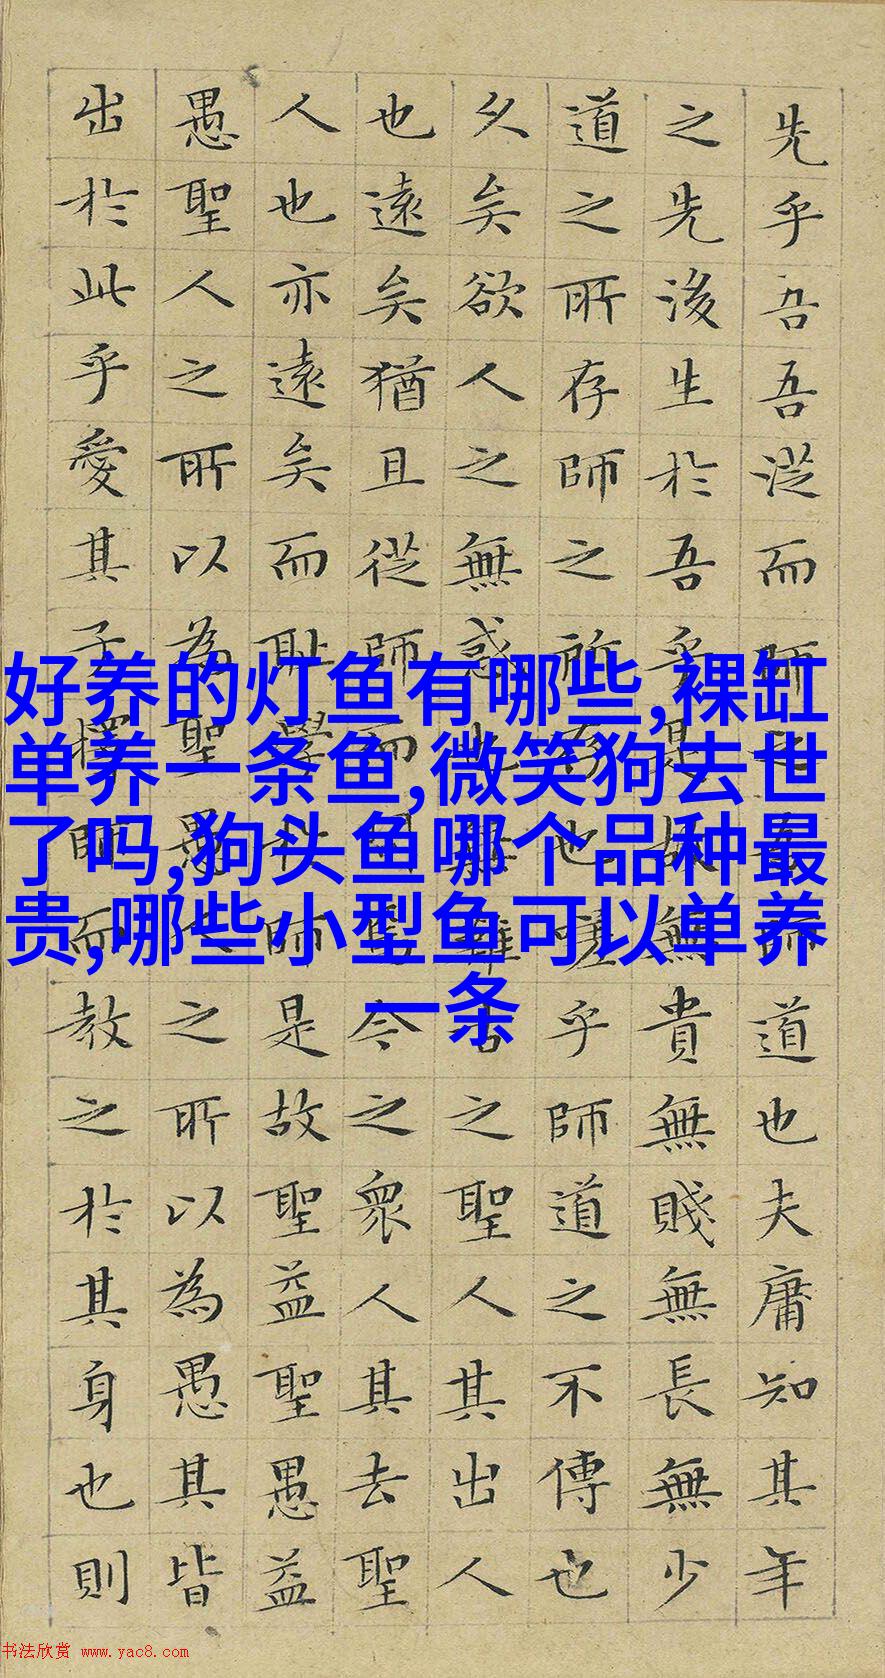 先乎吾吾從而師之吾師道也夫庸知其年
之先後生於吾乎是故無貴無賤無長無少
道之所存師之所存也嗟乎師道之不傳也
久矣欲人之無惑也難矣古之聖人其出人
也遠矣猶且從師而問焉今之衆人其去聖
人也亦遠矣而耻學於師是故聖益聖愚益
愚聖人之所以為聖愚人之所以為愚其皆
出於此乎愛其子擇師而教之於其身也則
好养的灯鱼有哪些,裸缸
单养一条鱼,微笑狗去世
了吗,狗头鱼哪个品种最
贵,哪些小型鱼可以单养
一条
书法欣赏 www.yac8.com